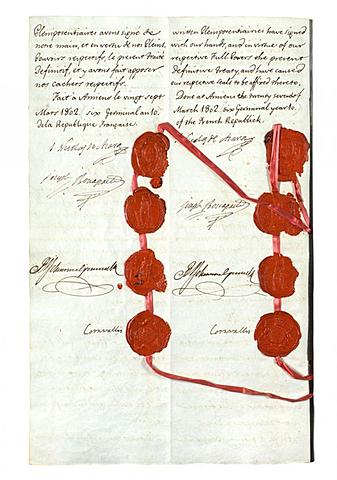 Plenipotentiaires avons signé de
notre main, et en vertu de nos Pleins
Pouvoirs respectifs, le présent Traité
Definitif, et y avons fait apposer
nos cachets respectifs.
Fait à Amiens le vingt sept
Mars 1802. six Germinal an 10.
de la République Française.
J. Nicolas de Azara
Joseph Bonaparte
R J Schimmelpenninck
Cornwallis
written Plenipotentiaries have signed
with our hands, and in virtue of our
respective Full Powers the present
Definitive Treaty, and have caused
our respective Seals to be affixed thereto.
Done at Amiens the twenty seventh of
March 1802. six Germinal year 10.
of the French Republick.
Nicolas de Azara
Joseph Bonaparte
R J Schimmelpenninck
Cornwallis